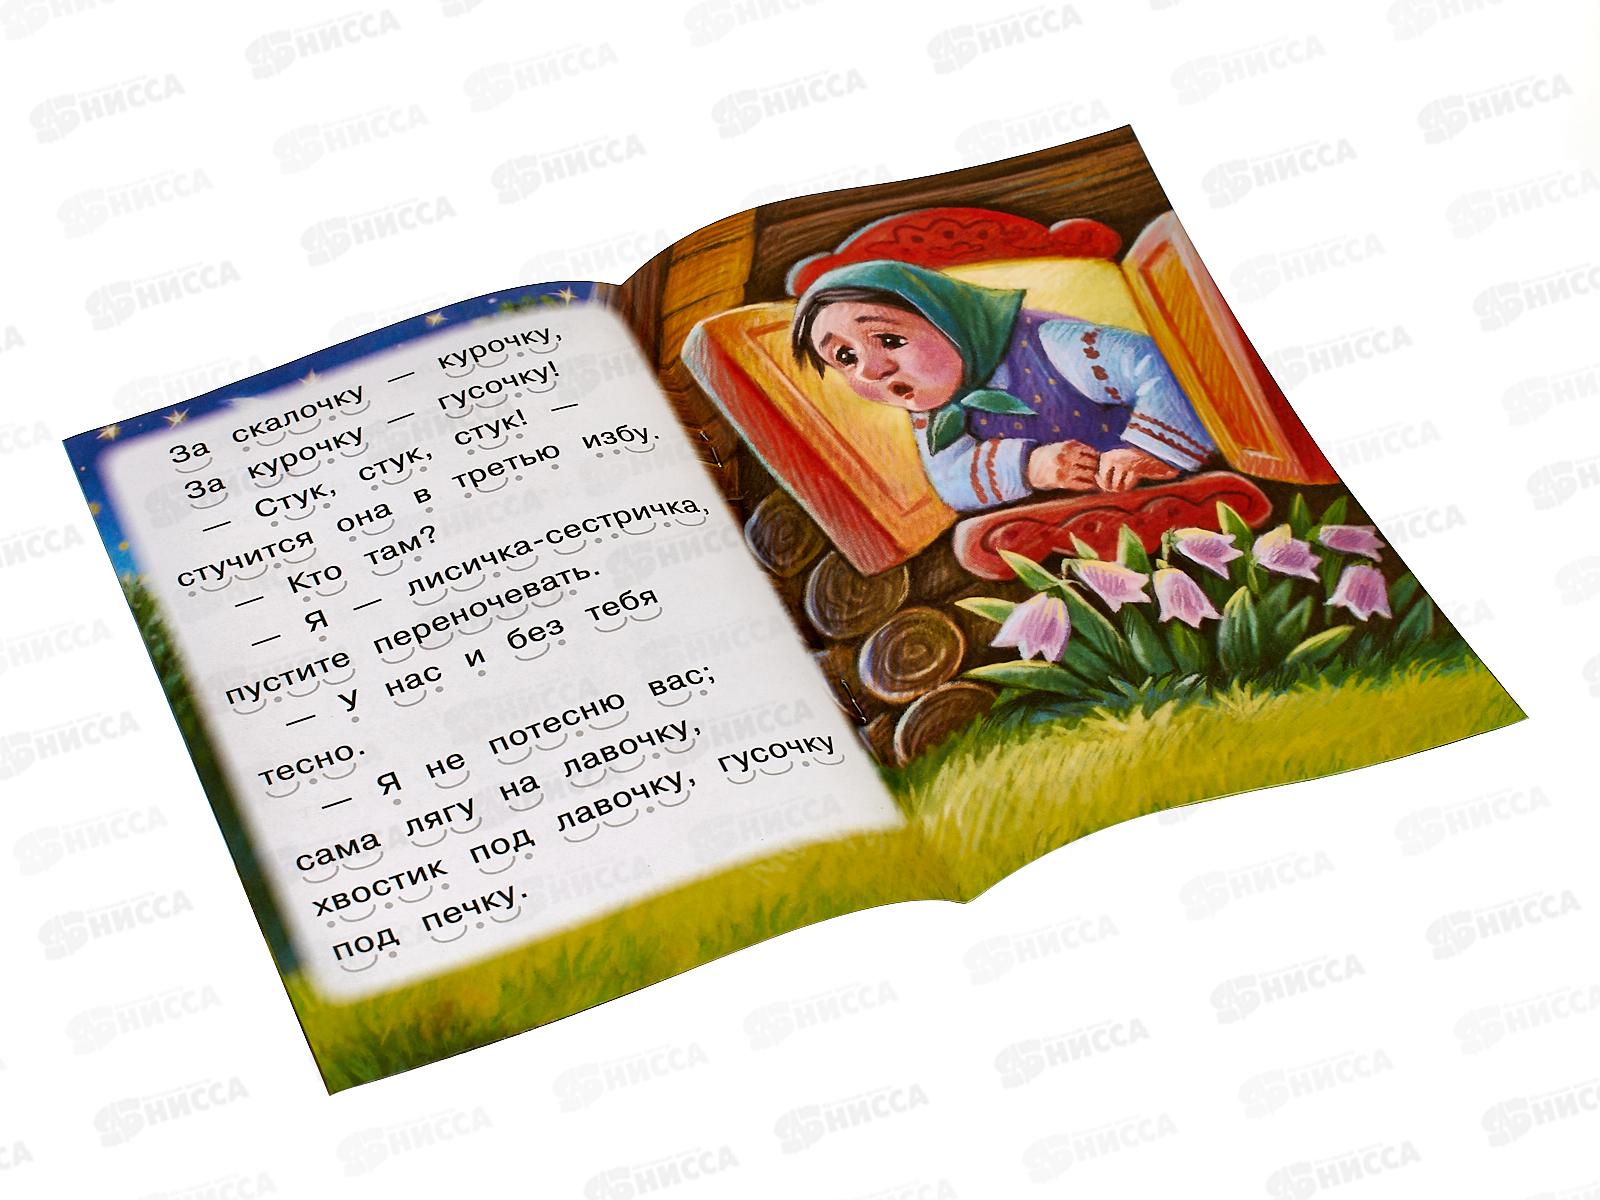 За скалочку — курочку,
За курочку — гусочку!
— Стук, стук, стук! —
стучится она в третью избу.
— Кто там?
— Я — лисичка-сестричка,
пустите переночевать.
— У нас и без тебя
тесно.
— Я не потесню вас;
сама лягу на лавочку,
хвостик под лавочку, гусочку
под печку.